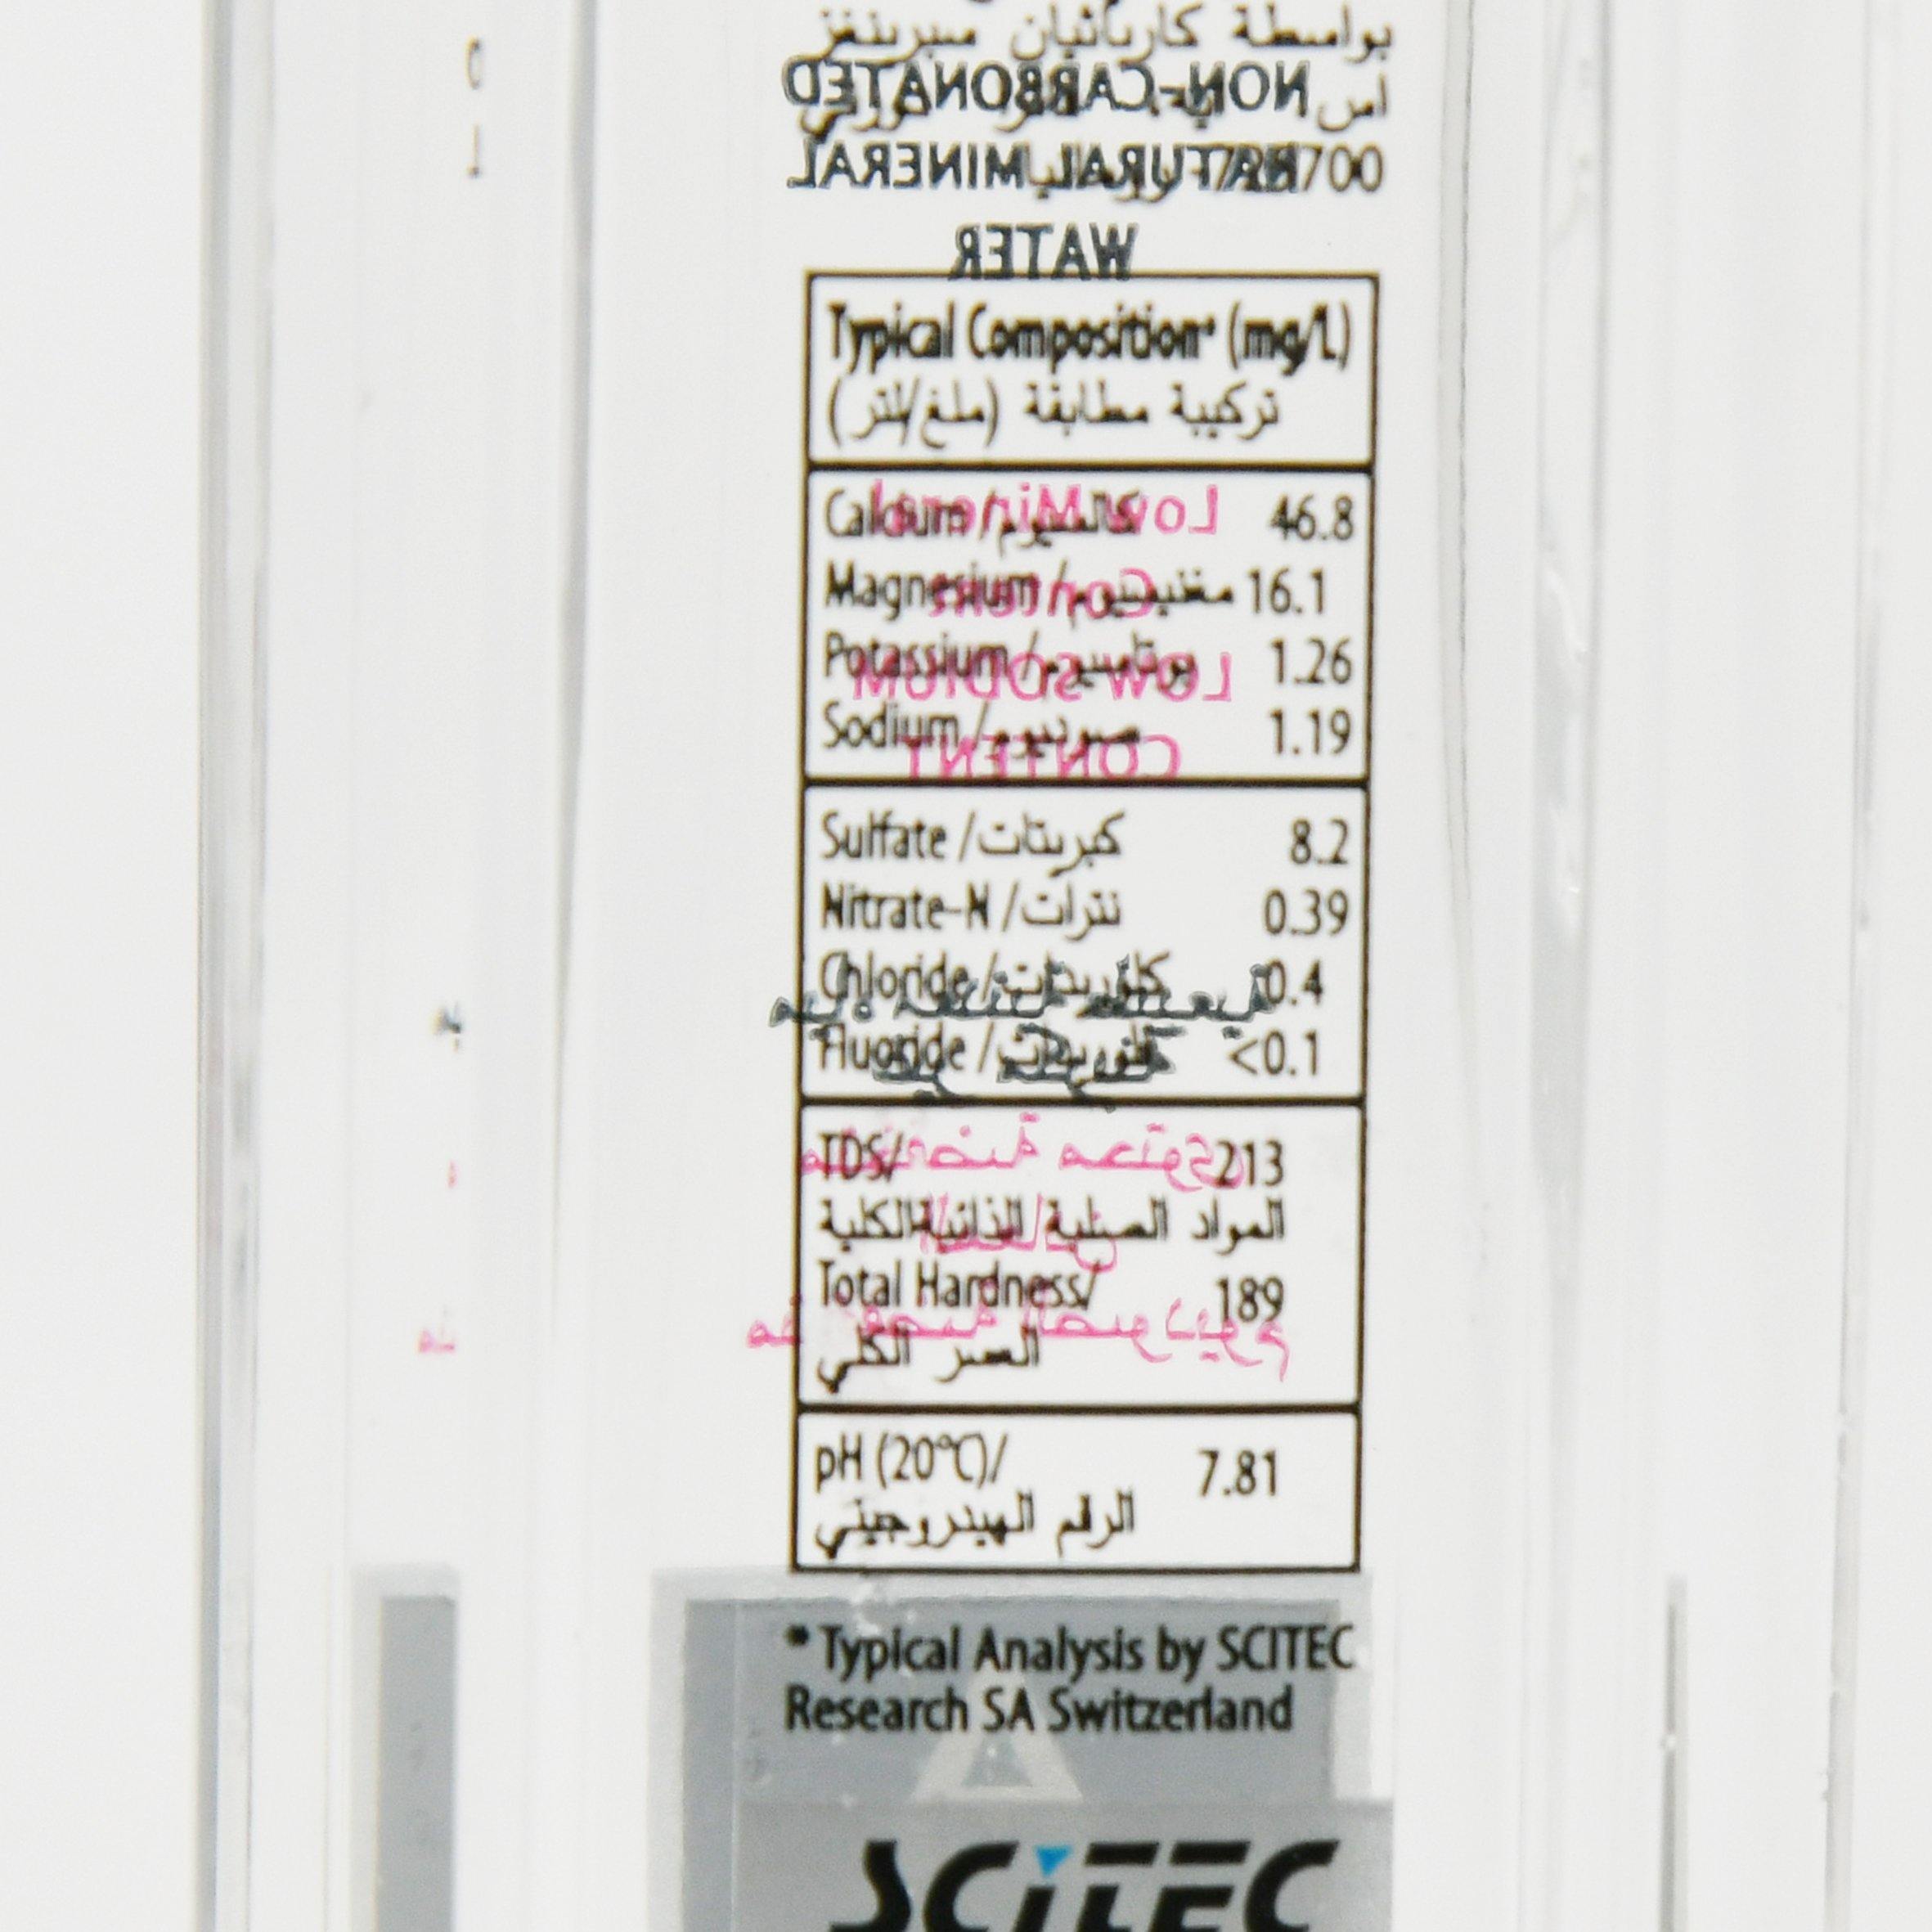 بواسطة كارباثيان سبرينغز
NON-CARBONATED
NATURAL MINERAL
WATER
Typical Composition* (mg/L)
تركيبة مطابقة (ملغ/لتر)
Calcium/كالسيوم 46.8
Magnesium/مغنيسيوم 16.1
Potassium/بوتاسيوم 1.26
Sodium/صوديوم 1.19
Low Mineral
Content
LOW SODIUM
CONTENT
Sulfate/كبريتات 8.2
Nitrate-N/نترات 0.39
Chloride/كلوريدات 0.4
Fluoride/فلوريدات <0.1
TDS/ 213
المواد الصلبة الذائبة الكلية
Total Hardness/ 189
العسر الكلي
pH (20°C)/ 7.81
الرقم الهيدروجيني
* Typical Analysis by SCITEC
Research SA Switzerland
SCITEC